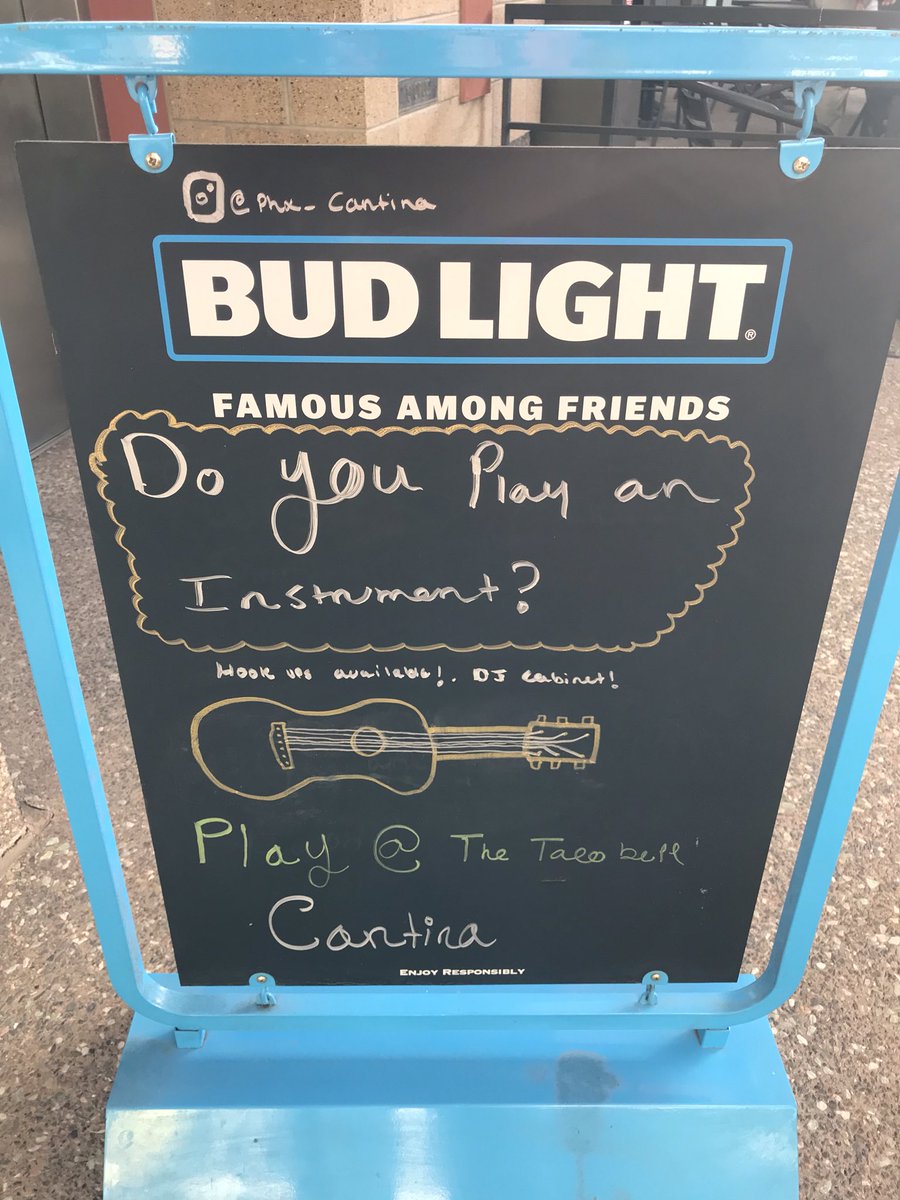 @Phx_Cantina
BUD LIGHT®
FAMOUS AMONG FRIENDS
Do you Play an
Instrument?
Hook ups available!. DJ cabinet!
Play @ The Taco bell
Cantina
ENJOY RESPONSIBLY